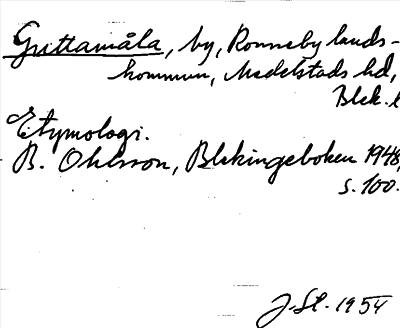 Guttamåla, by, Ronneby lands-
kommun, Medelstads hd,
Blek. l
Etymologi.
B. Ohlsson, Blekingeboken 1948,
s. 100.
J. Sl. 1954